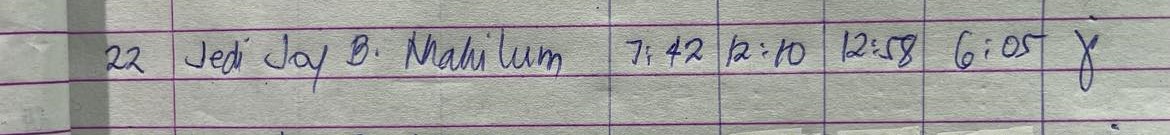 22 Jedi Joy B. Mahilum 7:42 12:10 12:58 6:05